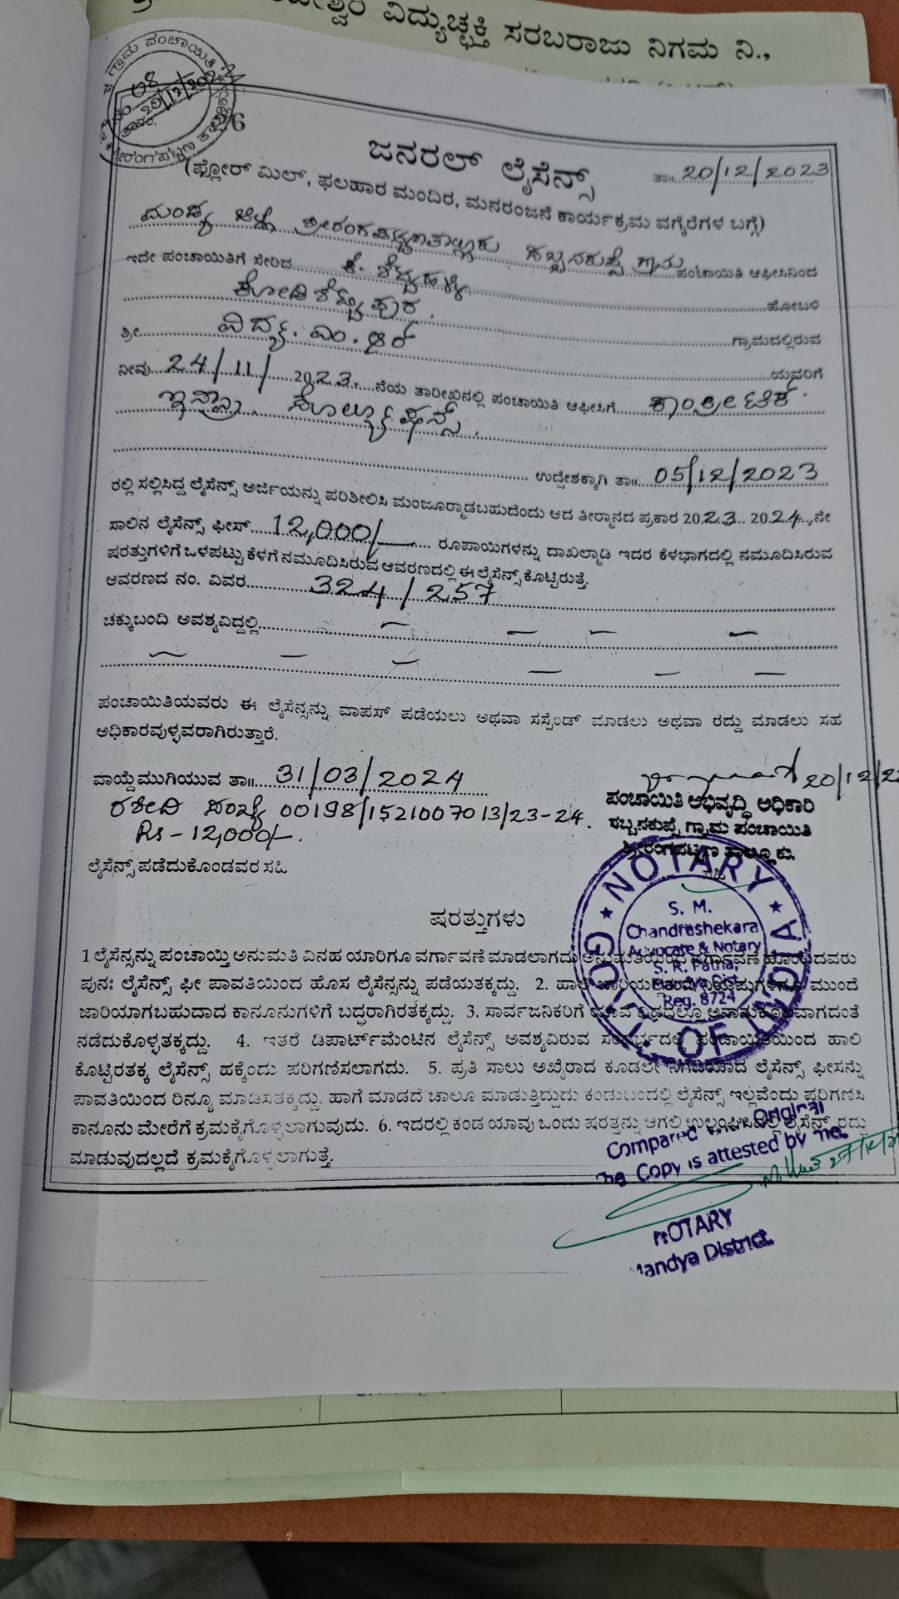 ವಿದ್ಯುಚ್ಛಕ್ತಿ ಸರಬರಾಜು ನಿಗಮ ನಿ.,
ಗ್ರಾಮ ಪಂಚಾಯಿತಿ
08
20/12/202
ಜನರಲ್ ಲೈಸೆನ್ಸ್
ತಾ॥ 20/12/2023
(ಫ್ಲೋರ್ ಮಿಲ್, ಫಲಹಾರ ಮಂದಿರ, ಮನರಂಜನೆ ಕಾರ್ಯಕ್ರಮ ವಗೈರೆಗಳ ಬಗ್ಗೆ)
ಮಂಡ್ಯ ಜಿಲ್ಲೆ ಶ್ರೀರಂಗಪಟ್ಟಣ ತಾಲ್ಲೂಕು ಗ್ರಾಮ ಪಂಚಾಯಿತಿ ಆಫೀಸಿನಿಂದ
ಇದೇ ಪಂಚಾಯಿತಿಗೆ ಸೇರಿದ ಕೆ. ಶೆಟ್ಟಹಳ್ಳಿ ಹೋಬಳಿ
ಕೋಡಿಶೆಟ್ಟಿಪುರ. ಗ್ರಾಮದಲ್ಲಿರುವ
ಶ್ರೀ ವಿದ್ಯ. ಎಂ. ಆರ್ ಯವರಿಗೆ
ನೀವು 24/11/2023. ನೆಯ ತಾರೀಖಿನಲ್ಲಿ ಪಂಚಾಯಿತಿ ಆಫೀಸಿಗೆ ಕಾಂಕ್ರೀಟೆಕ್
ಇನ್ಫ್ರಾ ಸೊಲ್ಯೂಷನ್ಸ್.
ಉದ್ದೇಶಕ್ಕಾಗಿ ತಾ॥ 05/12/2023
ರಲ್ಲಿ ಸಲ್ಲಿಸಿದ್ದ ಲೈಸೆನ್ಸ್ ಅರ್ಜಿಯನ್ನು ಪರಿಶೀಲಿಸಿ ಮಂಜೂರ್ಮಾಡಬಹುದೆಂದು ಆದ ತೀರ್ಮಾನದ ಪ್ರಕಾರ 2023 2024ನೇ
ಸಾಲಿನ ಲೈಸೆನ್ಸ್ ಫೀಸ್ 12,000/- ರೂಪಾಯಿಗಳನ್ನು ದಾಖಲ್ಮಾಡಿ ಇದರ ಕೆಳಭಾಗದಲ್ಲಿ ನಮೂದಿಸಿರುವ
ಷರತ್ತುಗಳಿಗೆ ಒಳಪಟ್ಟು ಕೆಳಗೆ ನಮೂದಿಸಿರುವ ಆವರಣದಲ್ಲಿ ಈ ಲೈಸೆನ್ಸ್ ಕೊಟ್ಟಿರುತ್ತೆ.
ಆವರಣದ ನಂ. ವಿವರ 324/257
ಚಕ್ಕುಬಂದಿ ಅವಶ್ಯವಿದ್ದಲ್ಲಿ
ಪಂಚಾಯಿತಿಯವರು ಈ ಲೈಸೆನ್ಸನ್ನು ವಾಪಸ್ ಪಡೆಯಲು ಅಥವಾ ಸಸ್ಪೆಂಡ್ ಮಾಡಲು ಅಥವಾ ರದ್ದು ಮಾಡಲು ಸಹ
ಅಧಿಕಾರವುಳ್ಳವರಾಗಿರುತ್ತಾರೆ.
ವಾಯ್ದೆಮುಗಿಯುವ ತಾ॥ 31/03/2024
20/12/23
ರಶೀದಿ ಸಂಖ್ಯೆ 00198/1521007013/23-24.
Rs-12,000/-
ಪಂಚಾಯಿತಿ ಅಭಿವೃದ್ಧಿ ಅಧಿಕಾರಿ
ಗ್ರಾಮ ಪಂಚಾಯಿತಿ
ಶ್ರೀರಂಗಪಟ್ಟಣ ತಾಲ್ಲೂಕು.
ಲೈಸೆನ್ಸ್ ಪಡೆದುಕೊಂಡವರ ಸಹಿ
NOTARY
S. M.
Chandrashekara
Advocate & Notary
S. R. Patna,
Mandya Dist
Reg. 8724
ಷರತ್ತುಗಳು
1 ಲೈಸೆನ್ಸನ್ನು ಪಂಚಾಯ್ತಿ ಅನುಮತಿ ವಿನಹ ಯಾರಿಗೂ ವರ್ಗಾವಣೆ ಮಾಡಲಾಗದು ಅನುಮತಿಯಿಂದ ವರ್ಗಾವಣೆ ಹೊಂದಿದವರು
ಪುನಃ ಲೈಸೆನ್ಸ್ ಫೀ ಪಾವತಿಯಿಂದ ಹೊಸ ಲೈಸೆನ್ಸನ್ನು ಪಡೆಯತಕ್ಕದ್ದು. 2. ಹಾಲಿ ಜಾರಿಯಲ್ಲಿರುವ ಮುಂದೆ
ಜಾರಿಯಾಗಬಹುದಾದ ಕಾನೂನುಗಳಿಗೆ ಬದ್ಧರಾಗಿರತಕ್ಕದ್ದು. 3. ಸಾರ್ವಜನಿಕರಿಗೆ ಯಾವ ವಿಧದಲ್ಲೂ ಅನಾನುಕೂಲವಾಗದಂತೆ
ನಡೆದುಕೊಳ್ಳತಕ್ಕದ್ದು. 4. ಇತರೆ ಡಿಪಾರ್ಟ್‌ಮೆಂಟಿನ ಲೈಸೆನ್ಸ್ ಅವಶ್ಯವಿರುವ ಸಂದರ್ಭದಲ್ಲಿ ಪಂಚಾಯಿತಿಯಿಂದ ಹಾಲಿ
ಕೊಟ್ಟಿರತಕ್ಕ ಲೈಸೆನ್ಸ್ ಹಕ್ಕೆಂದು ಪರಿಗಣಿಸಲಾಗದು. 5. ಪ್ರತಿ ಸಾಲು ಅಖೈರಾದ ಕೂಡಲೇ ನಿಗದಿಯಾದ ಲೈಸೆನ್ಸ್ ಫೀಸನ್ನು
ಪಾವತಿಯಿಂದ ರಿನ್ಯೂ ಮಾಡಿಸತಕ್ಕದ್ದು. ಹಾಗೆ ಮಾಡದೆ ಚಾಲೂ ಮಾಡುತ್ತಿದ್ದುದು ಕಂಡುಬಂದಲ್ಲಿ ಲೈಸೆನ್ಸ್ ಇಲ್ಲವೆಂದು ಪರಿಗಣಿಸಿ
ಕಾನೂನು ಮೇರೆಗೆ ಕ್ರಮಕೈಗೊಳ್ಳಲಾಗುವುದು. 6. ಇದರಲ್ಲಿ ಕಂಡ ಯಾವು ಒಂದು ಷರತ್ತನ್ನು ಆಗಲಿ ಉಲ್ಲಂಘಿಸಿದಲ್ಲಿ ಲೈಸೆನ್ಸ್ ರದ್ದು
ಮಾಡುವುದಲ್ಲದೆ ಕ್ರಮಕೈಗೊಳ್ಳಲಾಗುತ್ತೆ.
Compared Original
Copy is attested by me.
NOTARY
Mandya District.